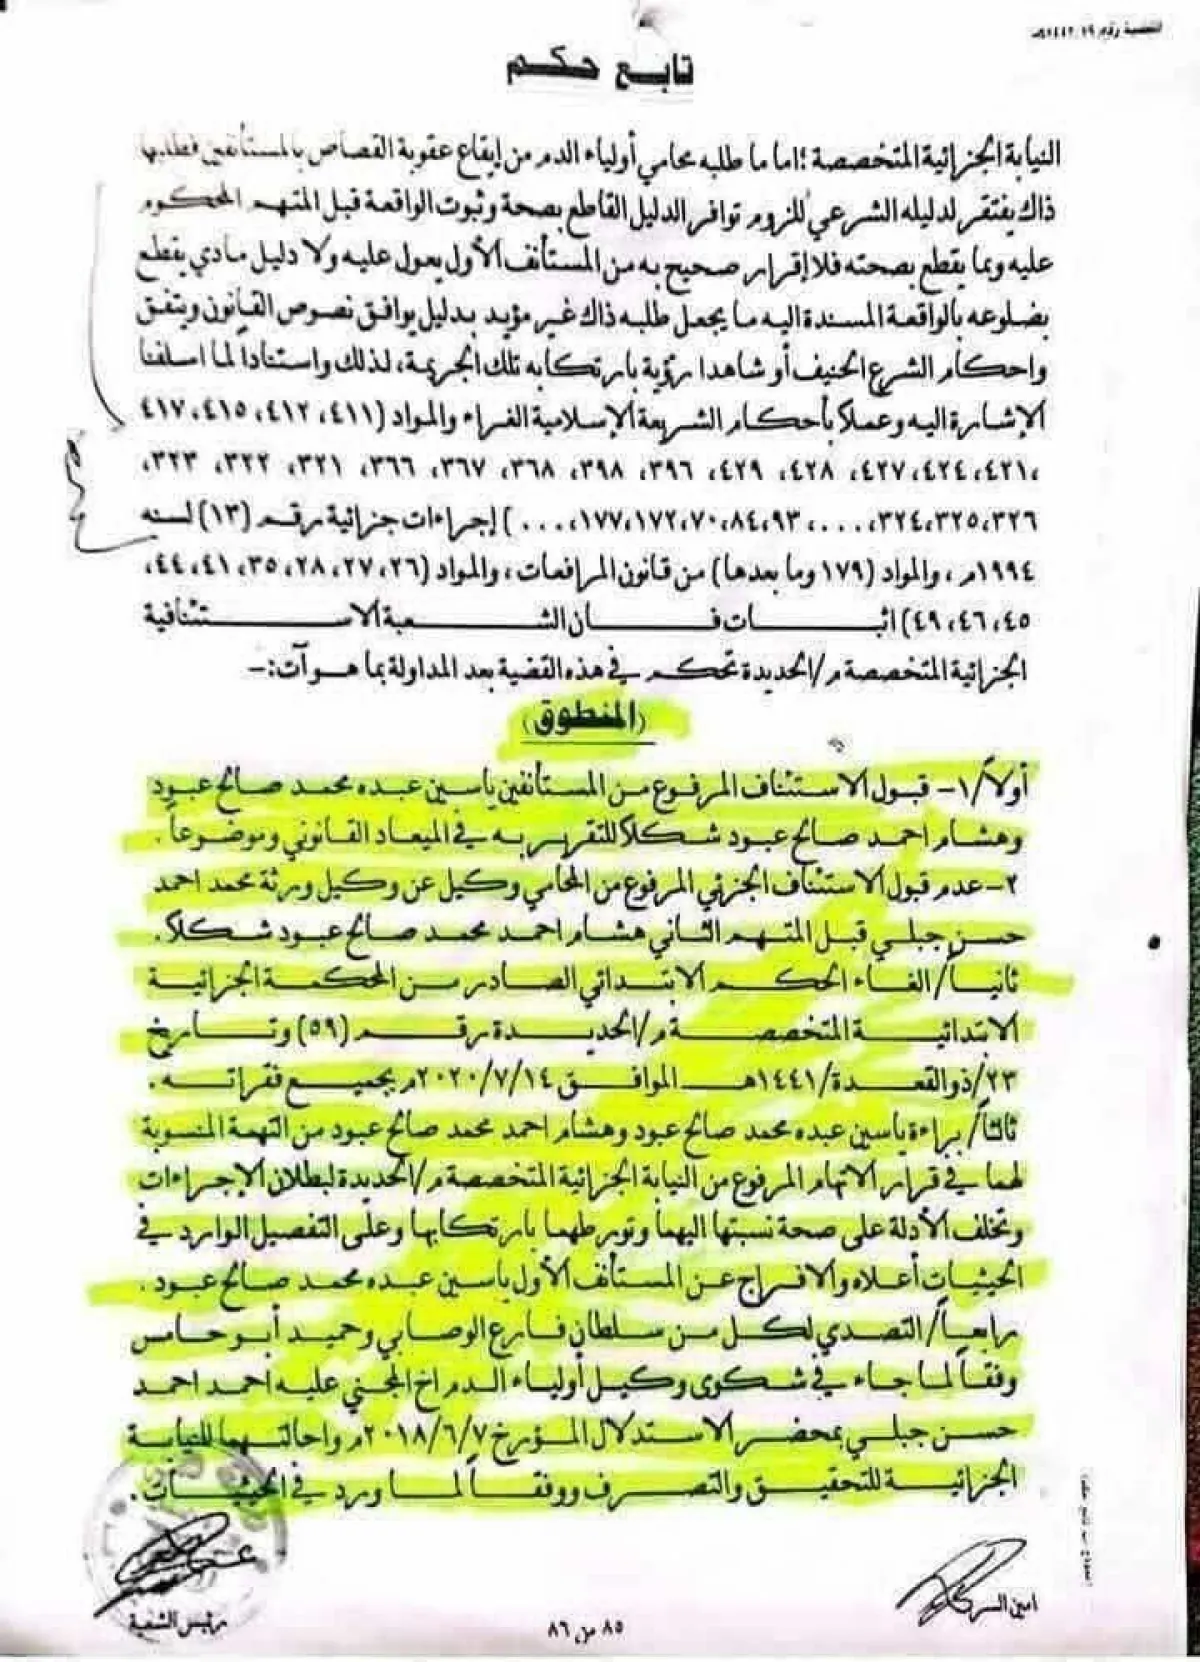 القضية رقم ١٩ ١٤٤٢هـ
تابع حكم
النيابة الجزائية المتخصصة؛ اما ما طلبه محامي أولياء الدم من إيقاع عقوبة القصاص بالمستأنفين فطلبها
ذاك يفتقر لدليله الشرعي للزوم توافر الدليل القاطع بصحة وثبوت الواقعة قبل المتهم المحكوم
عليه وبما يقطع بصحته فلا إقرار صحيح به من المستأنف الأول يعول عليه ولا دليل مادي يقطع
بضلوعه بالواقعة المسندة اليه ما يجعل طلبه ذاك غير مؤيد بدليل يوافق نصوص القانون ويتفق
واحكام الشرع الحنيف أو شاهدا رؤية بارتكابه تلك الجريمة، لذلك واستناداً لما اسلفنا
الإشارة اليه وعملاً بأحكام الشريعة الإسلامية الغراء والمواد (٤١١، ٤١٢، ٤١٥، ٤١٧
،٤٢١، ٤٢٤، ٤٢٧، ٤٢٨، ٤٢٩، ٣٩٦، ٣٩٨، ٣٦٨، ٣٦٧، ٣٦٦، ٣٢١، ٣٢٢، ٣٢٣،
٣٢٦، ٣٢٥، ٣٢٤، ...، ٩٣، ٨٤، ٧٠، ١٧٢، ١٧٧، ...) إجراءات جزائية رقم (١٣) لسنه
١٩٩٤م، والمواد (١٧٩ وما بعدها) من قانون المرافعات، والمواد (٢٦، ٢٧، ٢٨، ٣٥، ٤١، ٤٤،
٤٥، ٤٦، ٤٩) اثبات فان الشعبة الاستئنافية
الجزائية المتخصصة م/الحديدة تحكم في هذه القضية بعد المداولة بما هو آت:-
(المنطوق)
أولاً/١- قبول الاستئناف المرفوع من المستأنفين ياسين عبده محمد صالح عبود
وهشام احمد صالح عبود شكلاً للتقرير به في الميعاد القانوني وموضوعاً.
٢- عدم قبول الاستئناف الجزئي المرفوع من المحامي وكيل عن وكيل ورثة محمد احمد
حسن جبلي قبل المتهم الثاني هشام احمد محمد صالح عبود شكلاً.
ثانياً/ الغاء الحكم الابتدائي الصادر من المحكمة الجزائية
الابتدائية المتخصصة م/الحديدة رقم (٥٩) وتاريخ
٢٣/ذو القعدة/١٤٤١هـ الموافق ٢٠٢٠/٧/١٤م بجميع فقراته.
ثالثاً/ براءة ياسين عبده محمد صالح عبود وهشام احمد محمد صالح عبود من التهمة المنسوبة
لهما في قرار الاتهام المرفوع من النيابة الجزائية المتخصصة م/الحديدة لبطلان الإجراءات
وتخلف الأدلة على صحة نسبتها اليهما وتورطهما بارتكابها وعلى التفصيل الوارد في
الحيثيات أعلاه والافراج عن المستأنف الأول ياسين عبده محمد صالح عبود.
رابعاً/ التصدي لكل من سلطان فارع الوصابي وحميد أبو حامس
وفقاً لما جاء في شكوى وكيل أولياء الدم اخ المجني عليه احمد احمد
حسن جبلي بمحضر الاستدلال المؤرخ ٢٠١٨/٦/٧م واحالتهما للنيابة
الجزائية للتحقيق والتصرف ووفقاً لما ورد في الحيثيات.
امين السر
رئيس الشعبة
٨٥ من ٨٦